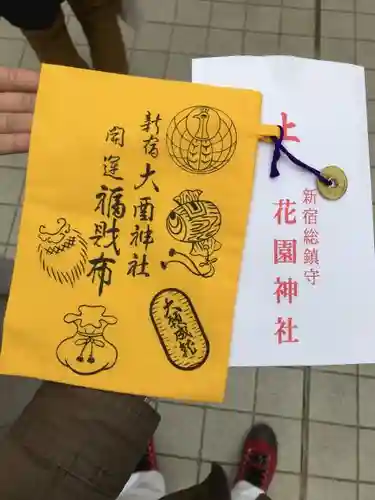 新宿 大酉神社
開運 福財布
大願成就
上
新宿総鎮守
花園神社